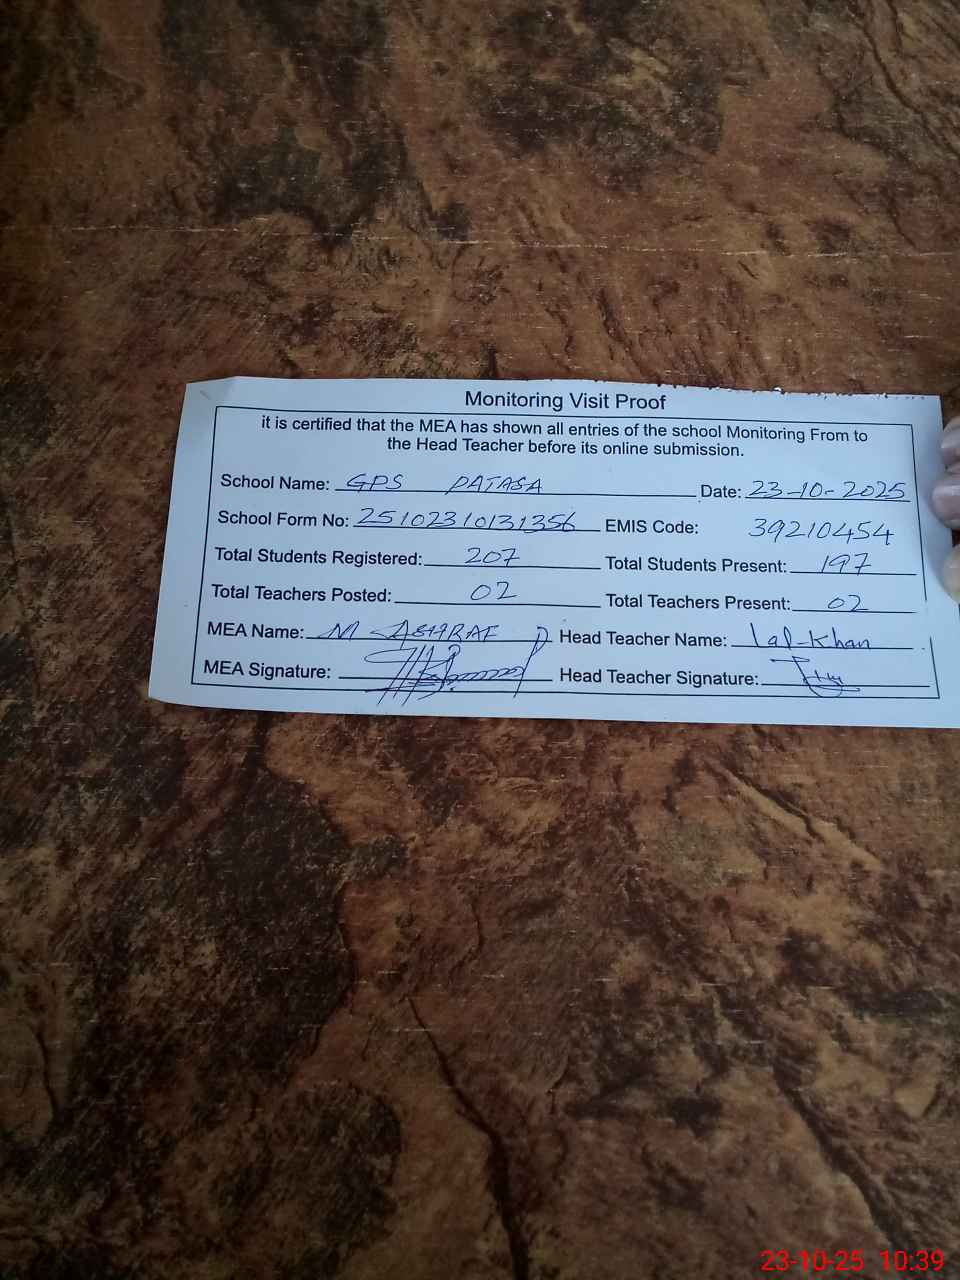 Monitoring Visit Proof
it is certified that the MEA has shown all entries of the school Monitoring From to
the Head Teacher before its online submission.
School Name: GPS PATASA Date: 23-10-2025
School Form No: 25102310131356 EMIS Code: 39210454
Total Students Registered: 207 Total Students Present: 197
Total Teachers Posted: 02 Total Teachers Present: 02
MEA Name: M ASHRAF Head Teacher Name: Lal-Khan
MEA Signature: Head Teacher Signature:
23-10-25 10:39